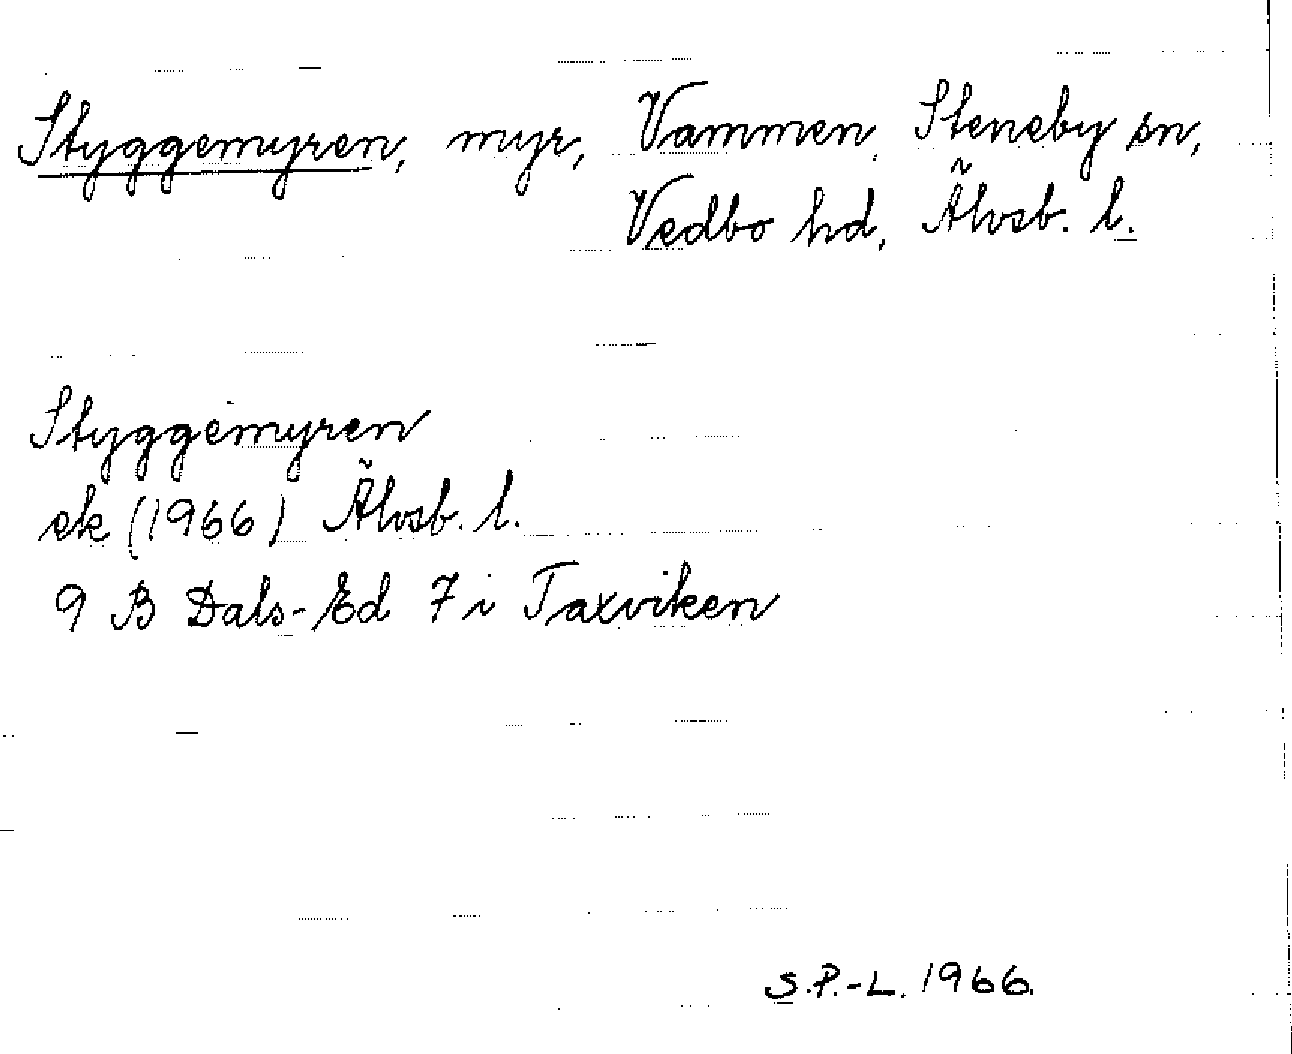 Styggemyren, myr, Vammen, Steneby sn,
Vedbo hd, Älvsb. l.
Styggemyren
ek (1966) Älvsb. l.
9 B Dals-Ed 7 i Taxviken
S.P.-L. 1966.